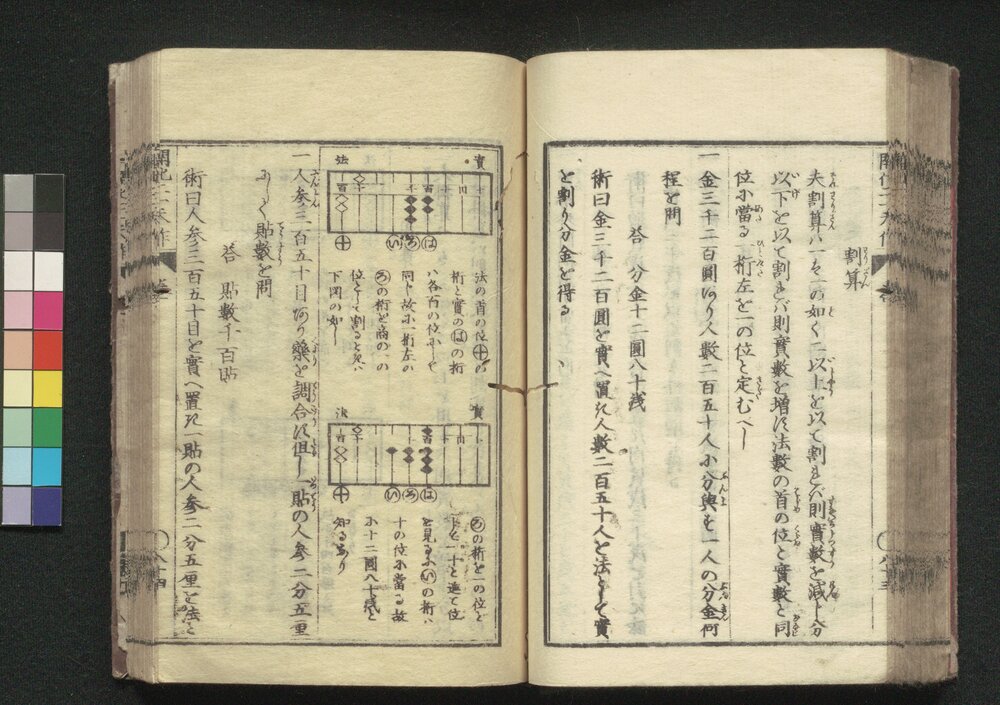 割算
夫割算ハ一を一の如く二以上を以て割れバ則實數を減じ分
以下を以て割れバ則實數を増す法數の首の位と實數と同
位に當る桁左を一の位と定むべし
一金三千二百圓あり人數二百五十人に分與も一人の分金何
程と問
答 分金十二圓八十浅
術曰金三千二百圓を實へ置き人數二百五十人を法として實
を割り分金を得る
八十三
實
法
いろは
十
法の首の位十の
桁と實のはの桁
ハ各百の位にして
同じ故に一桁左の
ろの桁を商の一の
位として割るときハ
下図の如し
實
法
いろは
十
ろの桁を一の位と
し一十と進て位
を見るにいの桁ハ
十の位に當る故
に十二圓八十浅と
知るなり
一人参三百五十目あり藥を調合す但し一貼の人参二分五厘
にして貼數を問
答 貼數千百貼
術曰人参三百五十目を實へ置き一貼の人参二分五厘を法と
八十四